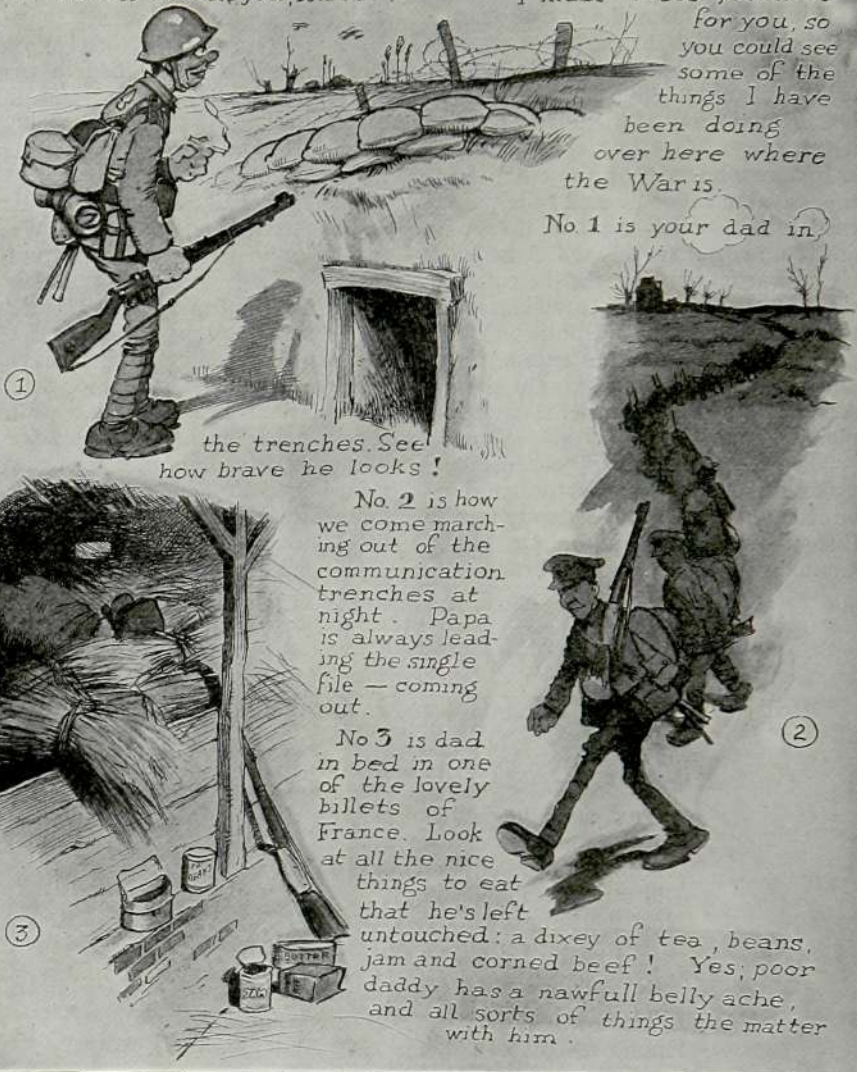 for you, so
you could see
some of the
things I have
been doing
over here where
the War is.
No. 1 is your dad in
1
the trenches. See
how brave he looks!
No. 2 is how
we come march-
ing out of the
communication
trenches at
night. Papa
is always lead-
ing the single
file — coming
out.
2
No 3 is dad
in bed in one
of the lovely
billets of
France. Look
at all the nice
things to eat
that he's left
untouched: a dixey of tea, beans,
jam and corned beef! Yes; poor
daddy has a nawfull belly ache,
and all sorts of things the matter
with him.
3